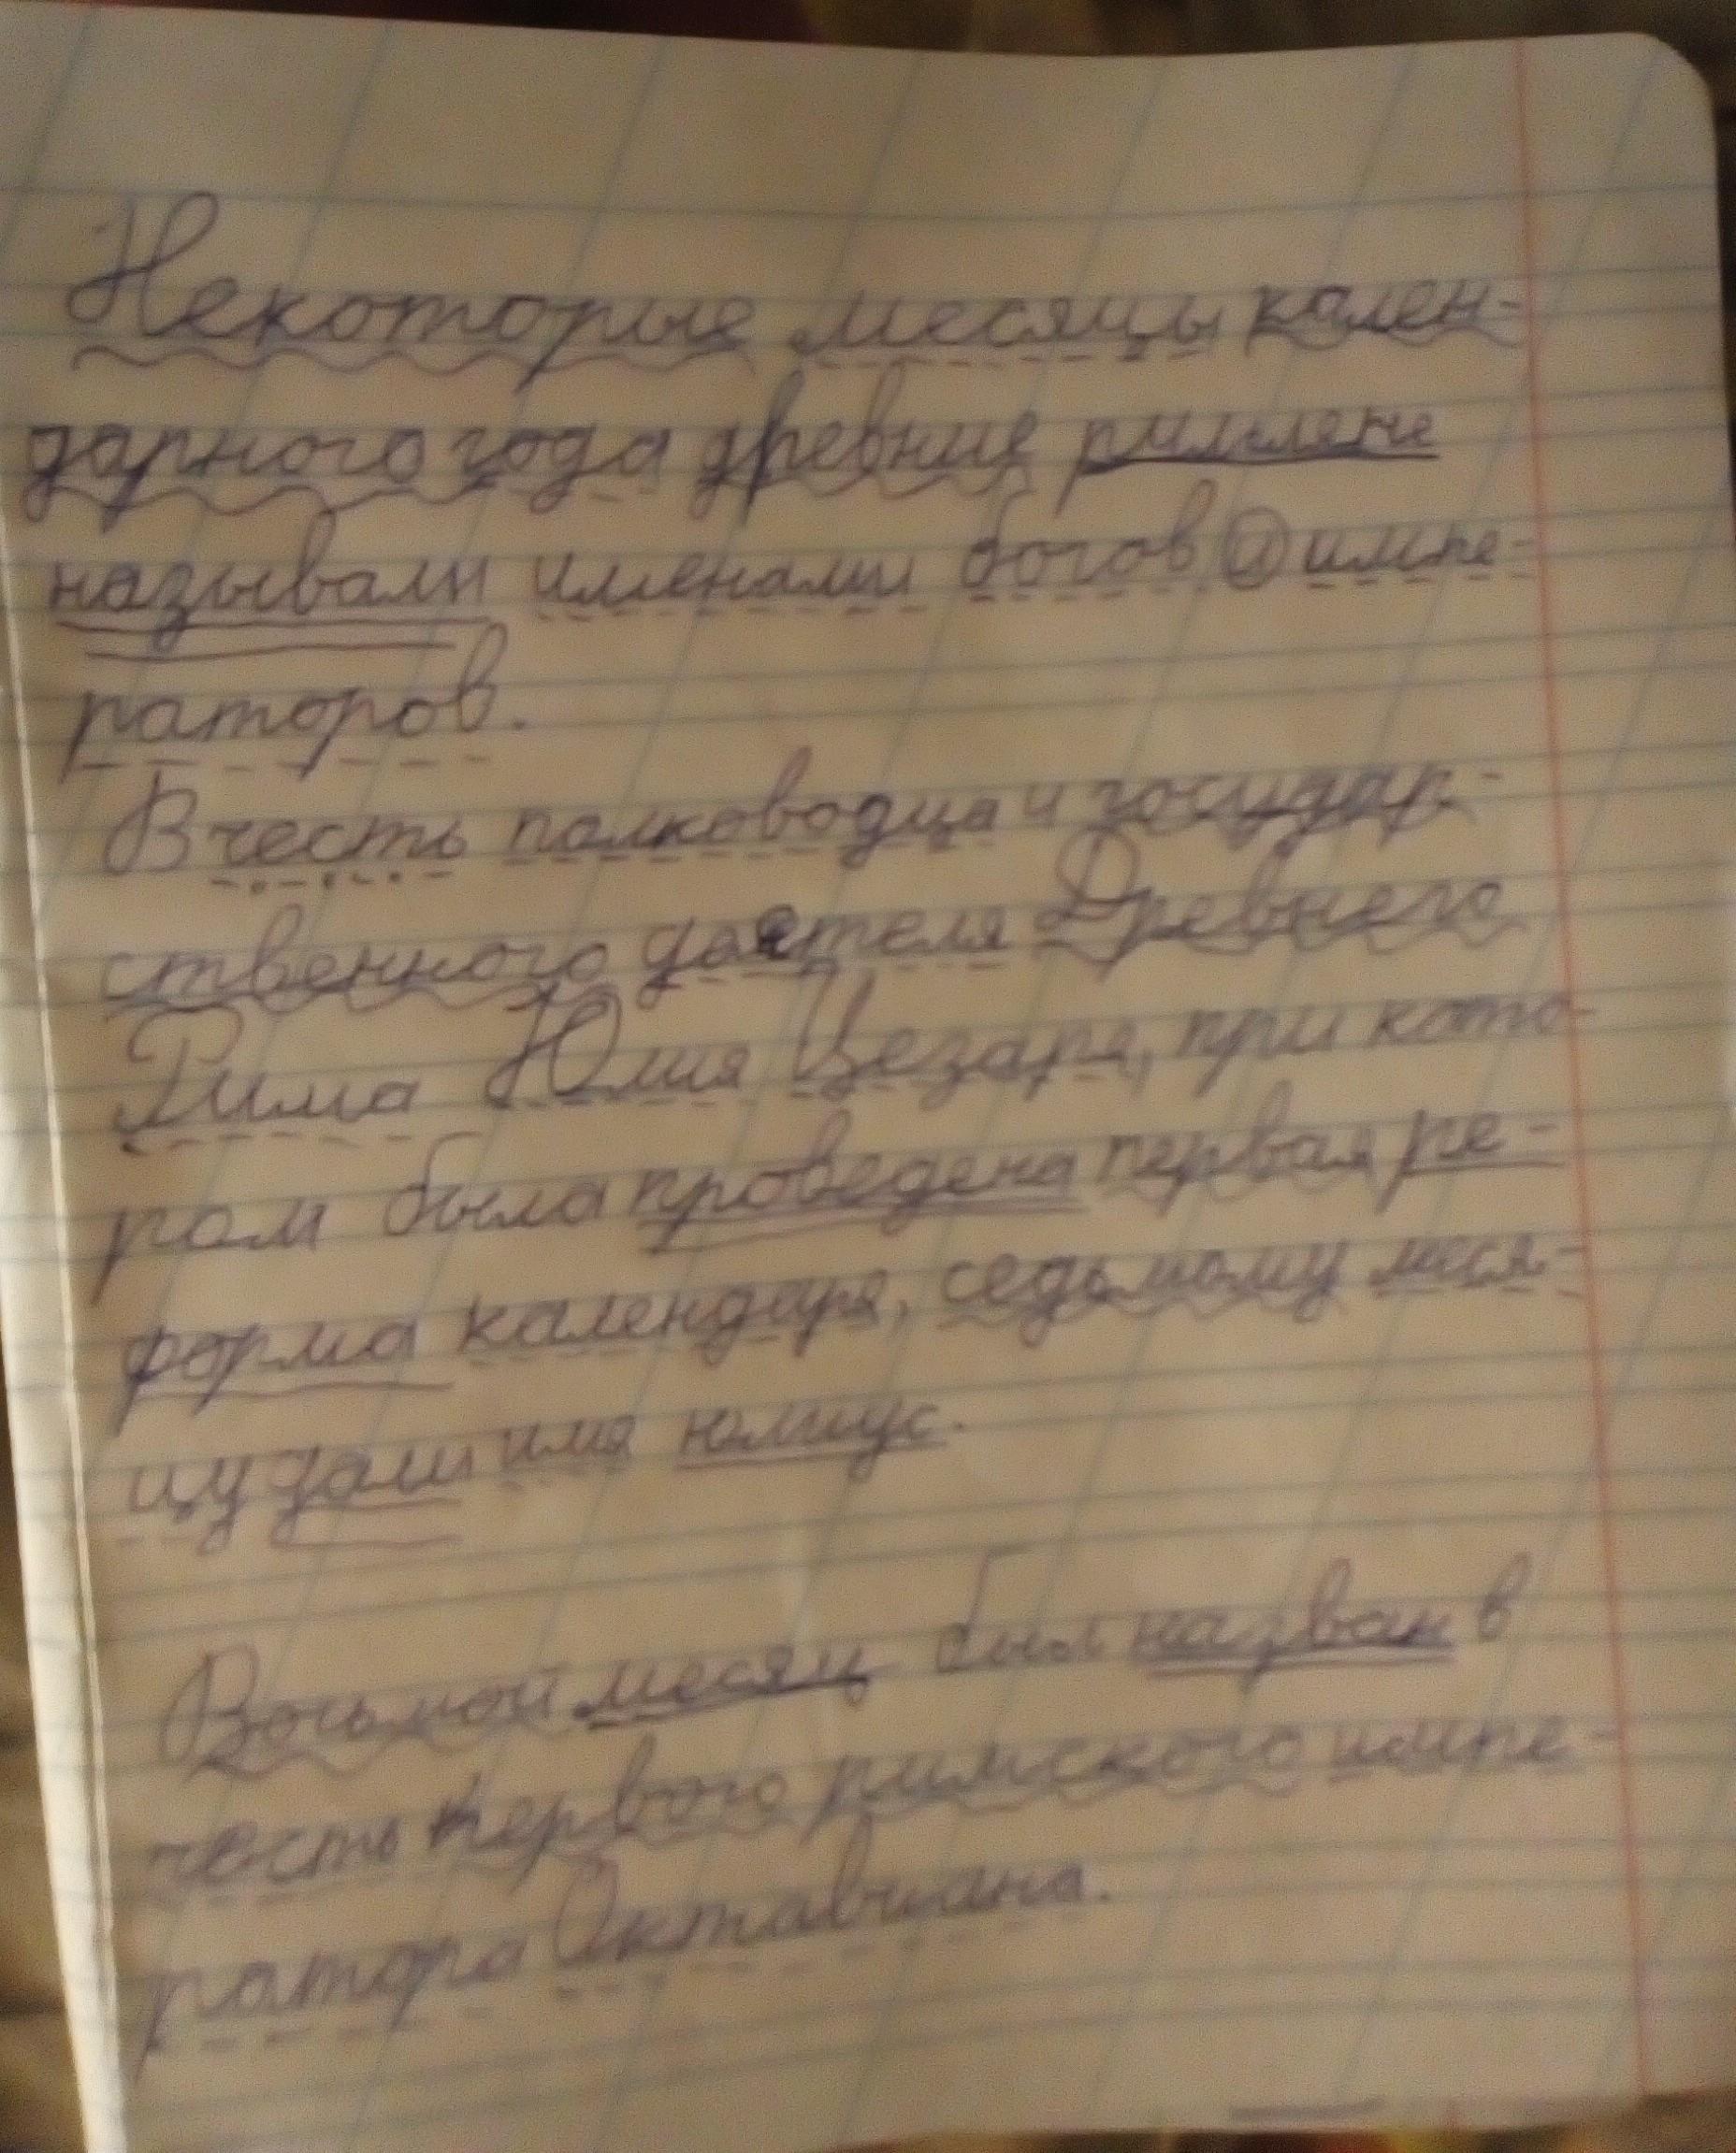 Некоторые месяцы кален-
дарного года древние римляне
называли именами богов и импе-
раторов.
В честь полководца и государ-
ственного деятеля Древнего
Рима Юлия Цезаря, при кото-
ром была проведена первая ре-
форма календаря, седьмому меся-
цу дали имя юлиус.
Восьмой месяц был назван в
честь первого римского импе-
ратора Октавиана.